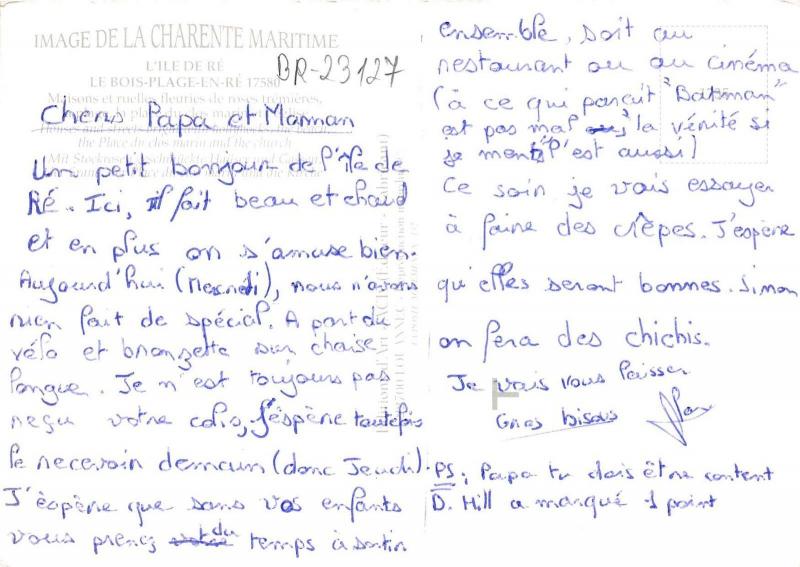 IMAGE DE LA CHARENTE MARITIME
L'ILE DE RÉ
LE BOIS-PLAGE-EN-RÉ 17580
BR-23127
Maisons et ruelles fleuries de roses trémières,
the Place du clos marin and the church
Chers Papa et Maman
Un petit bonjour de l'île de
Ré. Ici, il fait beau et chaud
et en plus on s'amuse bien.
Aujourd'hui (Mercredi), nous n'avons
rien fait de spécial. A part du
vélo et bronzette sur chaise
longue. Je n'est toujours pas
reçu votre colis, J'éspère toutefois
le recevoir demain (donc Jeudi).
J'éspère que sans vos enfants
vous prenez du temps à sortir
ensemble, soit au
restaurant ou au cinéma
(à ce qui parait "Batman"
est pas mal, la vérité si
je ments "l'est aussi)
Ce soir je vais essayer
à faire des crêpes. J'espère
qu'elles seront bonnes. Sinon
on fera des chichis.
Je vais vous laisser
Gros bisous
PS: Papa tu dois être content
D. Hill a marqué 1 point